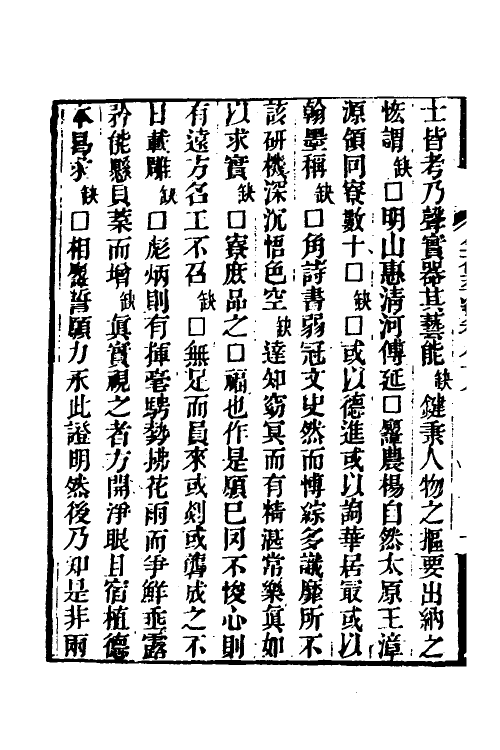 士皆考乃聲實器其藝能缺鍵秉人物之摳要出納之
恢謂缺□明山惠清河傅延□鄾農楊自然太原王漳
源領同寮數十□缺□或以德進或以詢華居最或以
翰墨稱缺□角詩書弱冠文史然而博綜多識靡所不
該研機深沉悟色空缺達知窈冥而有精湛常樂眞如
以求實缺□寮庶品之□福也作是願已罔不悛心則
有遠方名工不召缺□無足而員來或剡或礱成之不
日載雕缺□彪炳則有揮毫騁勢拂花雨而爭鮮垂露
矜能懸貝葉而增缺眞實視之者方開淨眼且宿植德
本曷求缺□相盤誓願力永此證明然後乃知是非兩